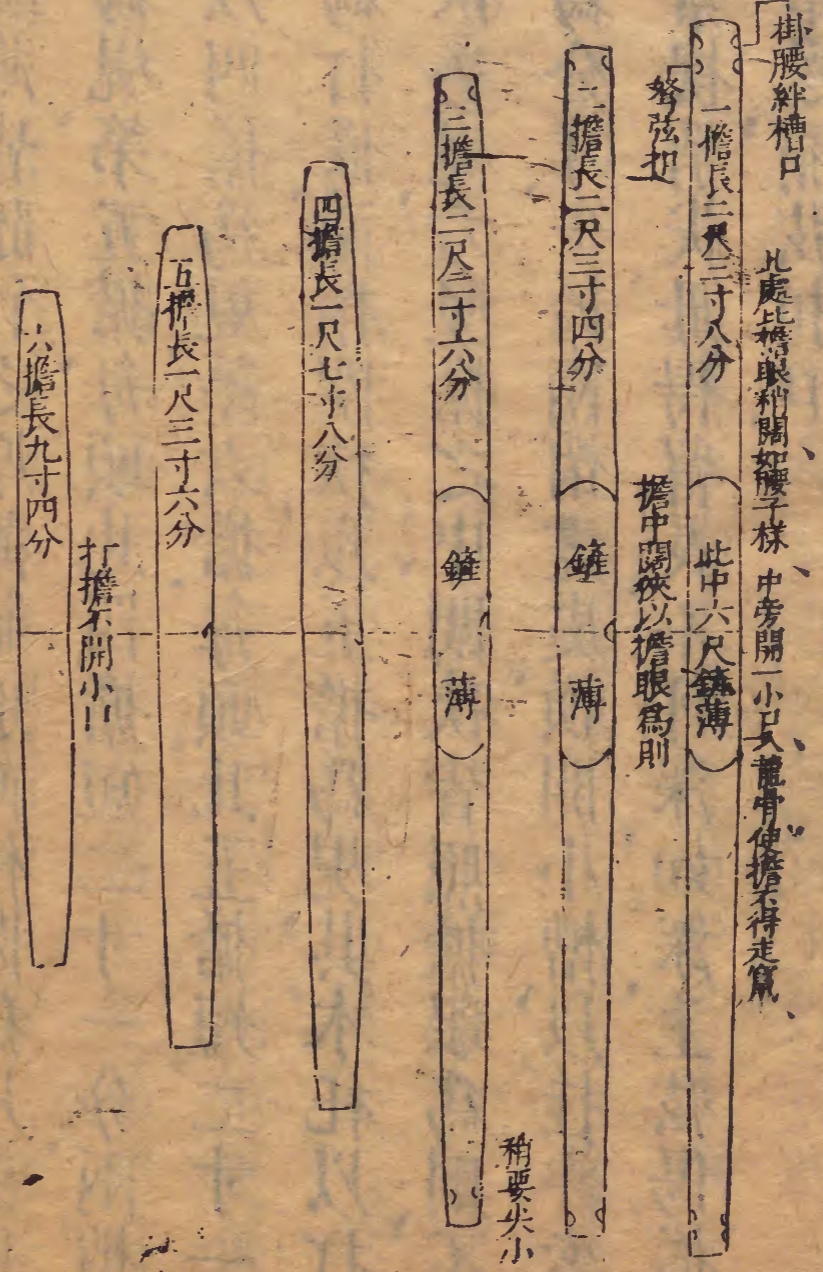 掛腰絆槽口
此處比擔眼稍闊如腰子樣、中旁開一小口入龍骨使擔不得走竄、
一擔長二尺三寸八分
此中六尺鏟薄
弩弦扣
擔中闊狹以擔眼爲則
二擔長二尺三寸四分
鏟薄
稍要尖小
三擔長二尺二寸六分
鏟薄
四擔長一尺七寸八分
五擔長一尺三寸六分
打擔不開小口
六擔長九寸四分